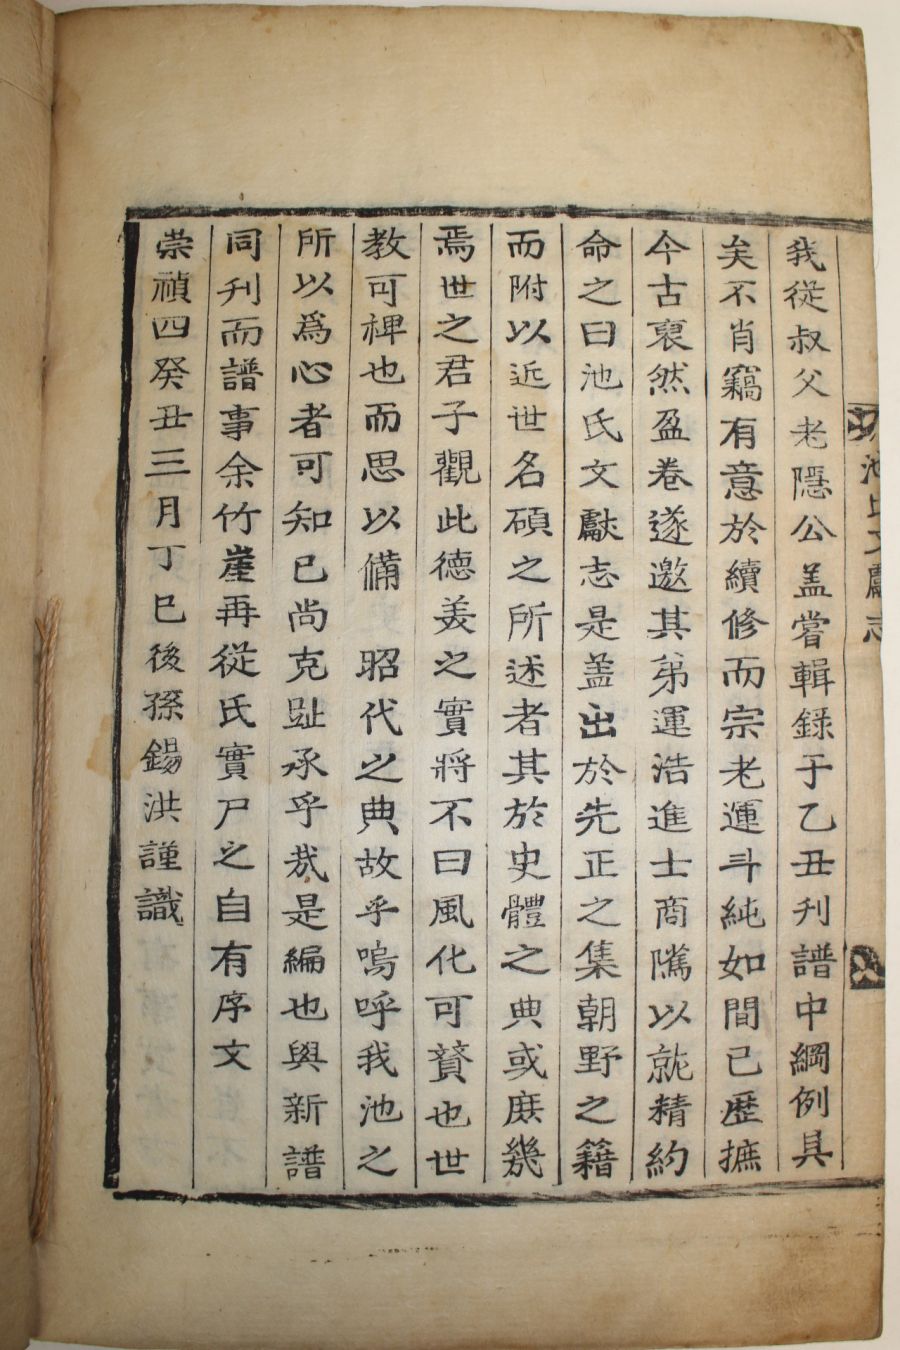 我從叔父老隱公盖嘗輯録于乙丑刋譜中綱例具
矣不肖竊有意於續修而宗老運斗純如間已歷摭
今古裒然盈卷遂邀其弟運浩進士商隲以就精約
命之曰池氏文獻志是盖出於先正之集朝野之籍
而附以近世名碩之所述者其於史體之典或庶幾
焉世之君子觀此德美之實將不曰風化可賛也世
教可裨也而思以備 昭代之典故乎嗚呼我池之
所以爲心者可知已尚克趾承乎哉是編也與新譜
同刋而譜事余竹崖再從氏實尸之自有序文
崇禎四癸丑三月丁巳後孫錫洪謹識
池氏文獻志